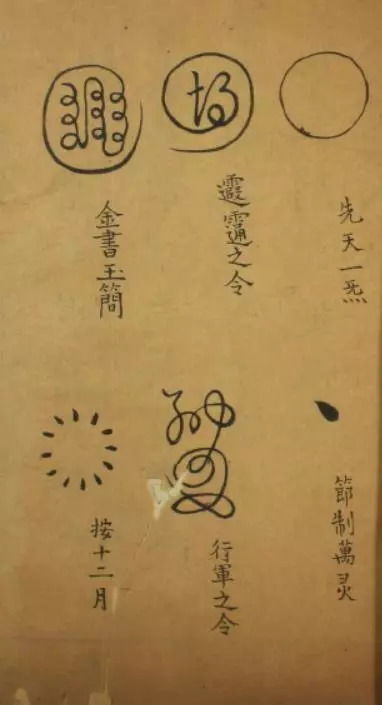 先天一炁
之令
金書玉簡
節制萬灵
行軍之令
按十二月